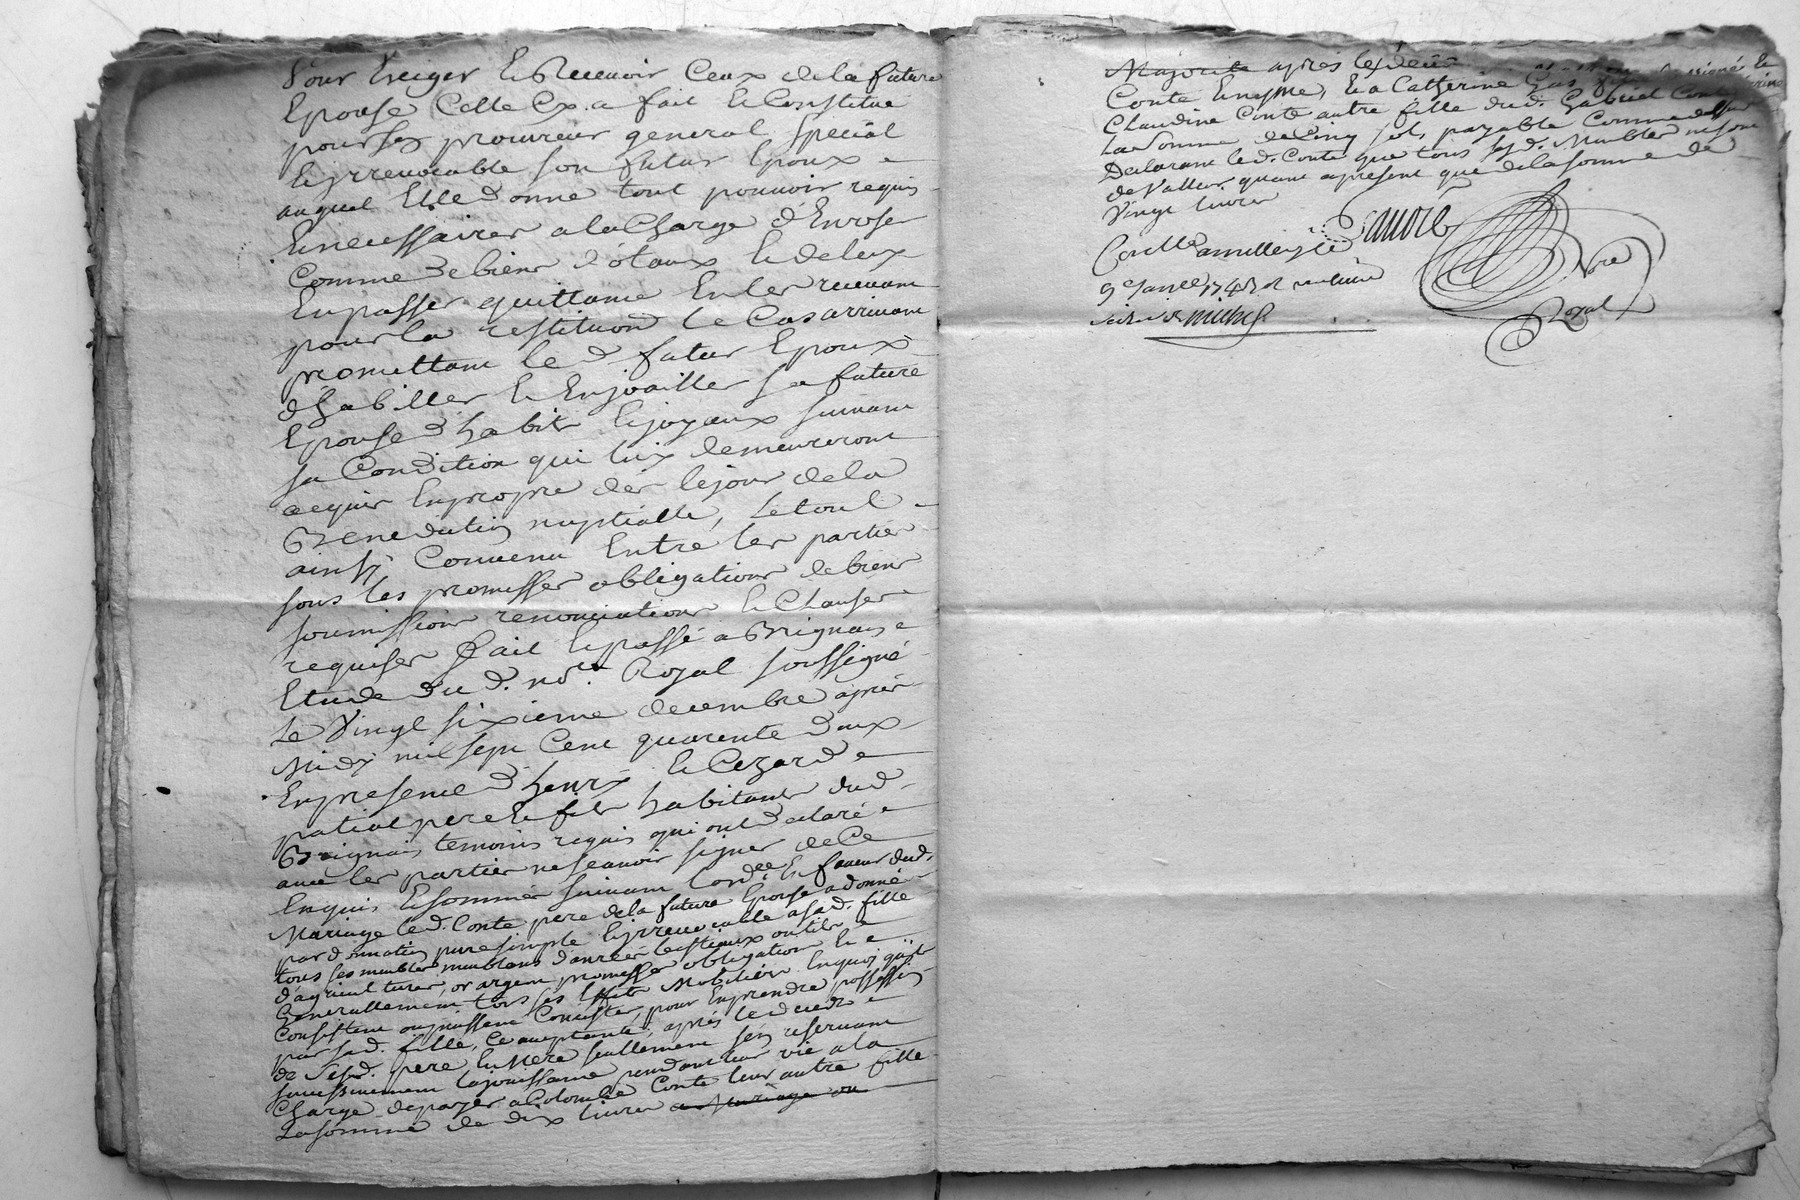 Pour Exiger & Recevoir Ceux de la future
Epouse Celle Cy a fait & Constitue
pour ses procureur general, special
& jrrevocable son futur Epoux
auquel Elle donne tout pouvoir requis
& necessaires a la Charge d'Enroser
Comme de biens dotaux & de leux
En passer quittame En les recevant
pour la restitution le Cas arrivant
promettant le d. futur Epoux
d'habiller & Enjoailler sa future
Epouse d'habits & joyaux suivant
sa Condition qui luy demeureront
acquis En propre des le jour de la
Benediction nuptialle, Le tout
ainsy Convenu Entre les parties
sous les promesses obligations de biens
soumissions renonciations & Clauses
requises fait & passé a Brignais
Etude du d. no.re Royal soussigné
Le vingt sixieme decembre apres
Midy mil sept Cent quarente deux
En presence d'henry & Cezard
patial pere & fils habitants dud.
Brignais, temoins requis qui ont declaré
avec les parties ne scavoir signer de Ce
Enquis & sommés suivant l'ord.ce En faveur dud.
Mariage le d. Conte pere de la future Epouse a donné
par donnation pure simple & jrrevocable a sa d. fille
tous ses meubles meublans danrées bestiaux outils
d'agriculture, or argent promesses obligations &
Generallement tous ses Effets Mobiliers Enquoy qu'ils
Consistent ou puissent Consister, pour En prendre possession
par sa d. fille, Ce acceptante, apres le deceds
de Sesd. pere & Mere seullement s'en reservant
successivement la jouissance pendant leur vie a la
Charge de payer a Colombe Conte leur autre fille
La somme de dix livres a Mariage ou
Majorité apres le deceds
Conte & Catherine
Claudine Conte autre fille dud. Gabriel Conte
La Somme de Cinq sols payable Comme dessus
Declarant le d. Conte que tous sesd. Meubles ne sont
de Valleur quant apresent que de la somme de
Vingt livres
Gauvré
No.re
Royal
Conllé a milleri le
9 Janer 1743